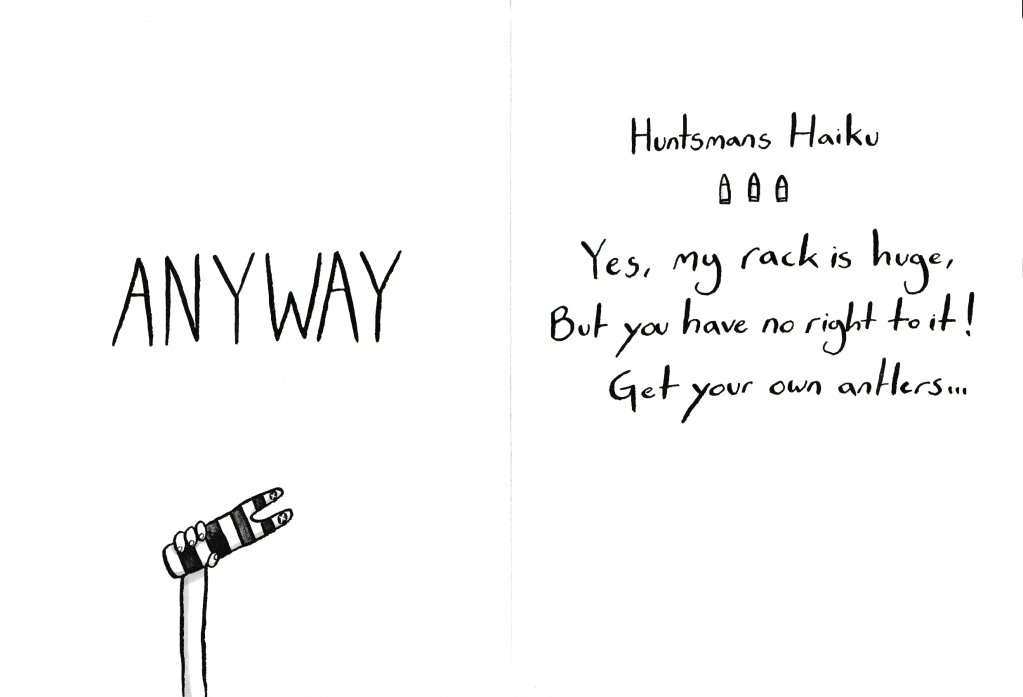 ANYWAY
Huntsmans Haiku
Yes, my rack is huge,
But you have no right to it!
Get your own antlers...